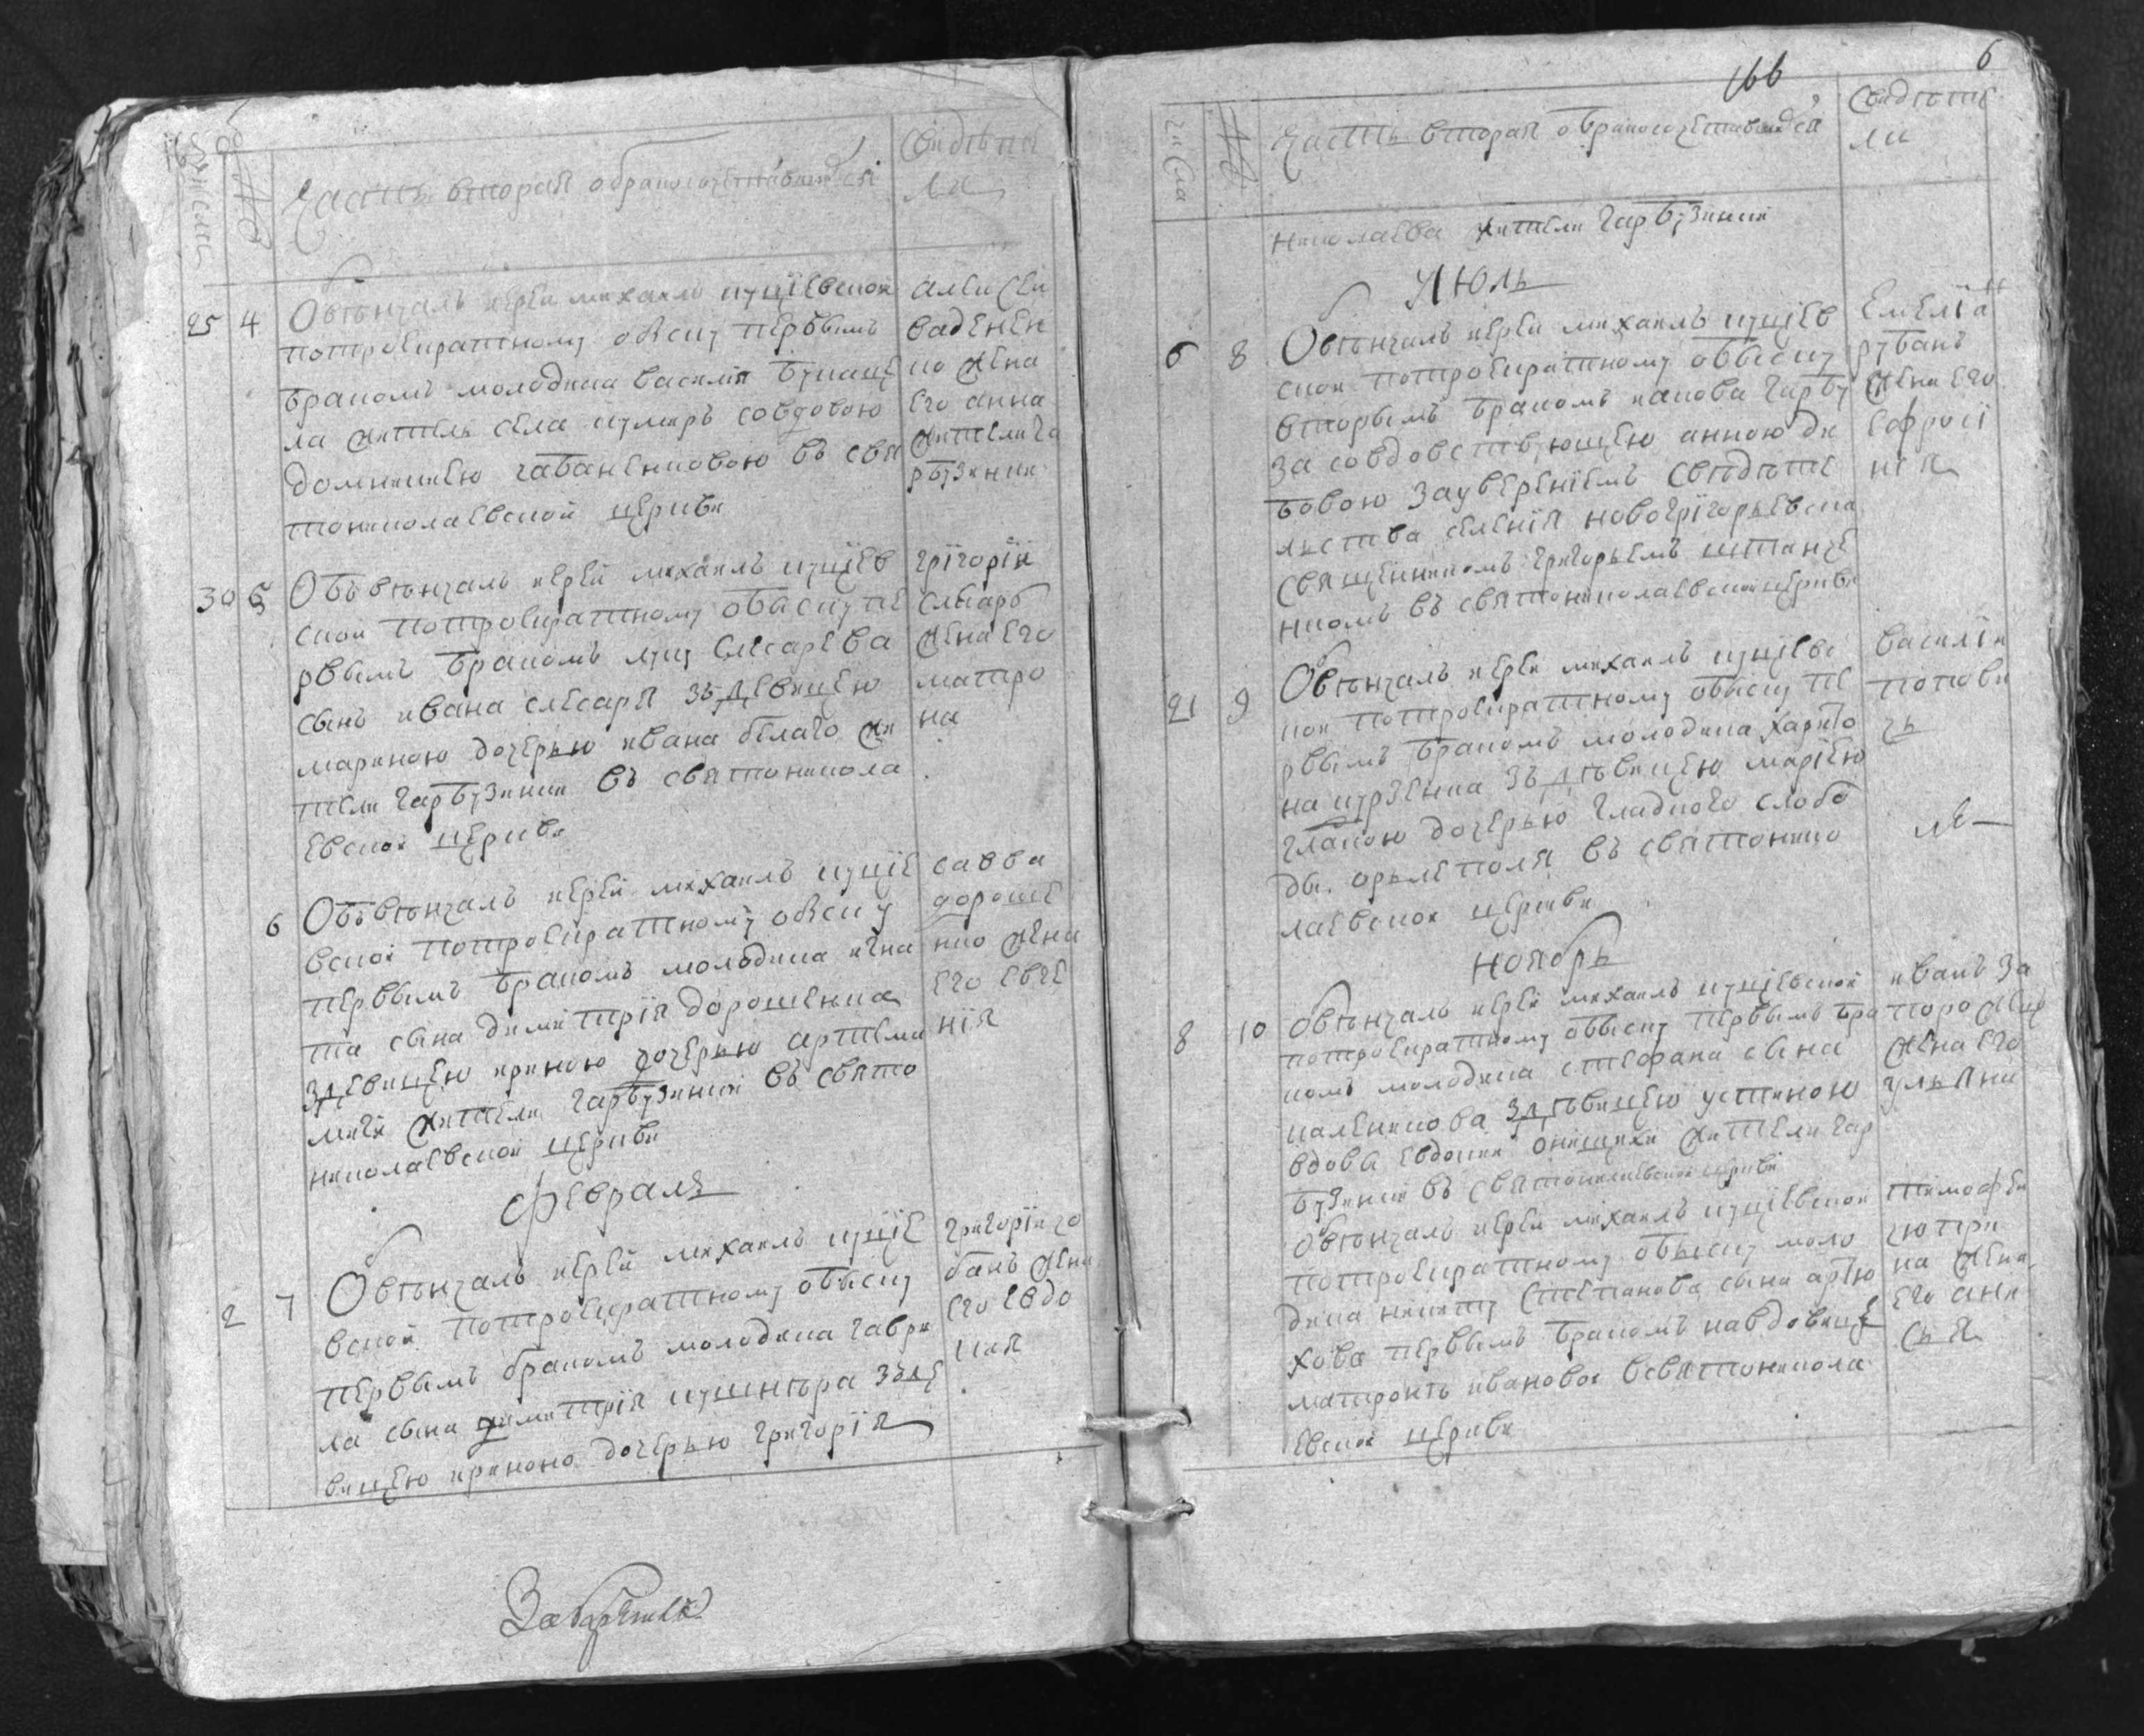 числа
№
Часть вторая о бракосочетавшихся
Свидѣте
ли
25 4
Обвѣнчалъ иерей михаилъ куцїевской
потроекратному обыску первымъ
бракомъ молодика василия букаце
ла житель села кумаръ совдовою
домникиею чабаненковою въ свя
тониколаевской церкви
алексѣи
ваденен
ко жена
его анна
жители га
рбузинки
30 5
Объвѣнчалъ иерей михаилъ куцїев
ской потроекратному обыску пе
рвымъ бракомъ луку слесарева
сынъ ивана слесаря зъ девицею
мариною дочерью ивана белаго жи
тели гарбузинки въ святоникола
евской церкви
григорїй
слесарь
жена его
матро
на
6
Объвѣнчалъ иерей михаилъ куцїе
вской потроекратному обыску
первымъ бракомъ молодика игна
та сына димитрїя дорошенка
здевицею ириною дочерью артеми
жители гарбузинки въ свято
николаевской церкви
савва
дороше
нко жена
его евге
нїя
февраля
2 7
Обвѣнчалъ иерей михаилъ куцїе
вской потроекратному обыску
первымъ бракомъ молодика гаври
ла сына димитрїя кушнѣра зъде
вицею ириною дочерью григорїя
григорїи чо
банъ жена
его евдо
кия
166
6
числа
№
Часть вторая о бракосочетавшихся
Свидѣте
ли
николаева жители гарбузинки
Июль
6 8
Обвѣнчалъ иерей михаилъ куцїев
ской потроекратному обыску
вторымъ бракомъ якова гарбу
за совдовствующею анною ди
бовою зауверенїемъ свѣдѣте
льства селенїя новогригорьевска
священникомъ григорьемъ штанче
нкомъ въ святониколаевской церкви
Емелїа
рубанъ
жена его
ефросї
нїя
21 9
Обвѣнчалъ иерей михаилъ куцїевс
кои потроекратному обыску пе
рвымъ бракомъ молодика харито
на курзенка зъ дѣвицею марїею
главною дочерью гладкого слобо
ды орлеполя въ святонико
лаевской церкви
василїи
попови
чъ
ноябрь
8 10
Обвѣнчалъ иерей михаилъ куцїевской
потроекратному обыску первымъ бра
комъ молодика стефана сына
каленикова здѣвицею устиною
вдовы евдокии онищихи жители гар
бузинки въ святониколаевской церкви
иванъ за
порожец
жена его
ульяна
Обвѣнчалъ иерей михаилъ куцїевской
потроекратному обыску моло
дика никиту степанова сына артю
хова первымъ бракомъ навдовице
матронѣ ивановой всвятоникола
евской церкви
тимофеи
чюпри
на жена
его ани
сья